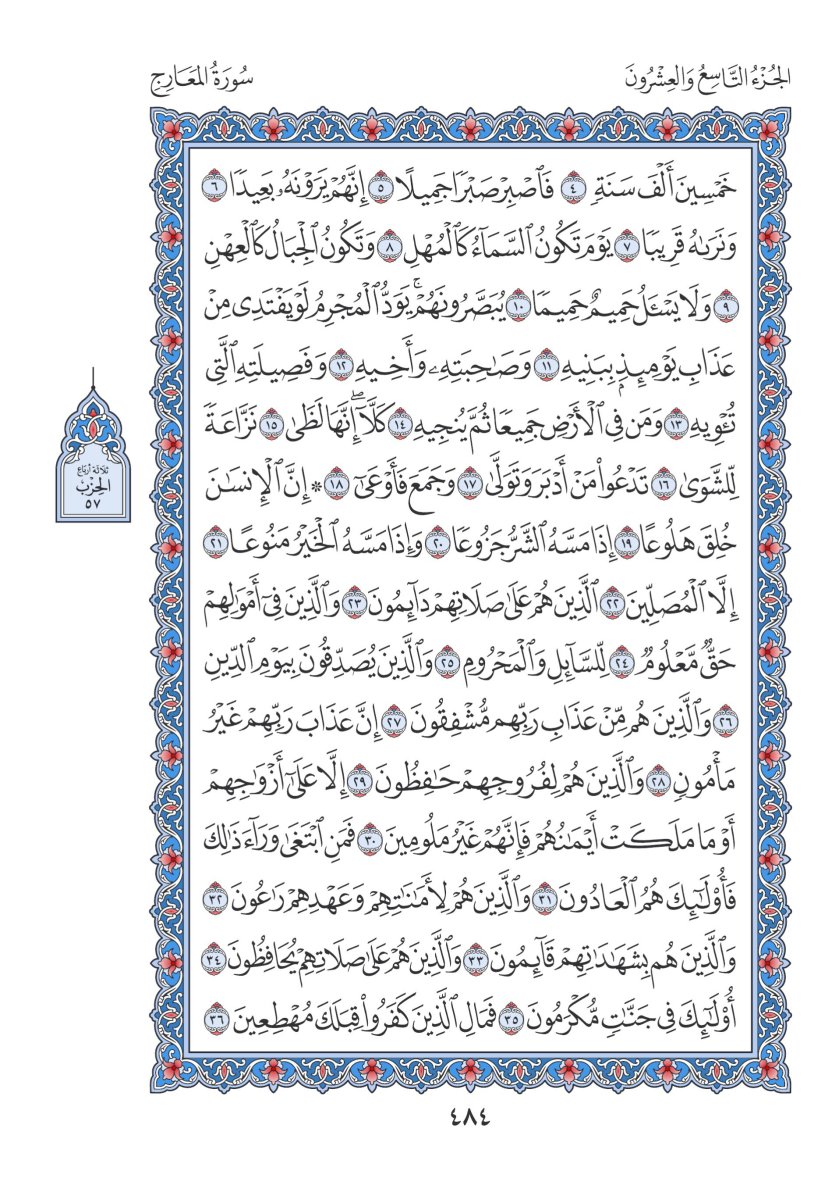 الجُزْءُ التَّاسِعُ وَالعِشْرُونَ
سُورَةُ المَعَارِجِ
خَمۡسِينَ أَلۡفَ سَنَةٖ ٤ فَٱصۡبِرۡ صَبۡرٗا جَمِيلًا ٥ إِنَّهُمۡ يَرَوۡنَهُۥ بَعِيدٗا ٦
وَنَرَىٰهُ قَرِيبٗا ٧ يَوۡمَ تَكُونُ ٱلسَّمَآءُ كَٱلۡمُهۡلِ ٨ وَتَكُونُ ٱلۡجِبَالُ كَٱلۡعِهۡنِ
٩ وَلَا يَسۡـَٔلُ حَمِيمٌ حَمِيمٗا ١٠ يُبَصَّرُونَهُمۡۚ يَوَدُّ ٱلۡمُجۡرِمُ لَوۡ يَفۡتَدِي مِنۡ
عَذَابِ يَوۡمِئِذِۭ بِبَنِيهِ ١١ وَصَٰحِبَتِهِۦ وَأَخِيهِ ١٢ وَفَصِيلَتِهِ ٱلَّتِي
تُـٔۡوِيهِ ١٣ وَمَن فِي ٱلۡأَرۡضِ جَمِيعٗا ثُمَّ يُنجِيهِ ١٤ كَلَّآۖ إِنَّهَا لَظَىٰ ١٥ نَزَّاعَةٗ
لِّلشَّوَىٰ ١٦ تَدۡعُواْ مَنۡ أَدۡبَرَ وَتَوَلَّىٰ ١٧ وَجَمَعَ فَأَوۡعَىٰٓ ١٨ * إِنَّ ٱلۡإِنسَٰنَ
خُلِقَ هَلُوعًا ١٩ إِذَا مَسَّهُ ٱلشَّرُّ جَزُوعٗا ٢٠ وَإِذَا مَسَّهُ ٱلۡخَيۡرُ مَنُوعًا ٢١
إِلَّا ٱلۡمُصَلِّينَ ٢٢ ٱلَّذِينَ هُمۡ عَلَىٰ صَلَاتِهِمۡ دَآئِمُونَ ٢٣ وَٱلَّذِينَ فِيٓ أَمۡوَٰلِهِمۡ
حَقّٞ مَّعۡلُومٞ ٢٤ لِّلسَّآئِلِ وَٱلۡمَحۡرُومِ ٢٥ وَٱلَّذِينَ يُصَدِّقُونَ بِيَوۡمِ ٱلدِّينِ
٢٦ وَٱلَّذِينَ هُم مِّنۡ عَذَابِ رَبِّهِم مُّشۡفِقُونَ ٢٧ إِنَّ عَذَابَ رَبِّهِمۡ غَيۡرُ
مَأۡمُونٖ ٢٨ وَٱلَّذِينَ هُمۡ لِفُرُوجِهِمۡ حَٰفِظُونَ ٢٩ إِلَّا عَلَىٰٓ أَزۡوَٰجِهِمۡ
أَوۡ مَا مَلَكَتۡ أَيۡمَٰنُهُمۡ فَإِنَّهُمۡ غَيۡرُ مَلُومِينَ ٣٠ فَمَنِ ٱبۡتَغَىٰ وَرَآءَ ذَٰلِكَ
فَأُوْلَٰٓئِكَ هُمُ ٱلۡعَادُونَ ٣١ وَٱلَّذِينَ هُمۡ لِأَمَٰنَٰتِهِمۡ وَعَهۡدِهِمۡ رَٰعُونَ ٣٢
وَٱلَّذِينَ هُم بِشَهَٰدَٰتِهِمۡ قَآئِمُونَ ٣٣ وَٱلَّذِينَ هُمۡ عَلَىٰ صَلَاتِهِمۡ يُحَافِظُونَ ٣٤
أُوْلَٰٓئِكَ فِي جَنَّٰتٖ مُّكۡرَمُونَ ٣٥ فَمَالِ ٱلَّذِينَ كَفَرُواْ قِبَلَكَ مُهۡطِعِينَ ٣٦
ثلاثة أرباع
الحِزْب
٥٧
٤٨٤